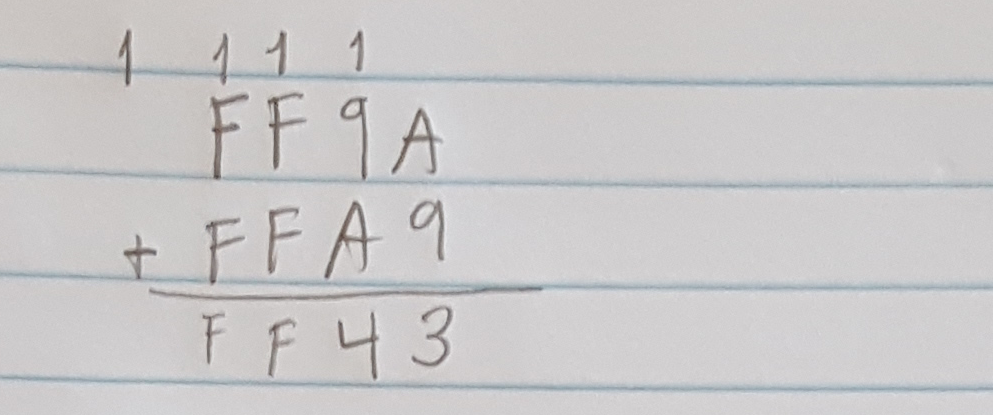 1 1 1 1
FF9A
+ FFA9
FF43